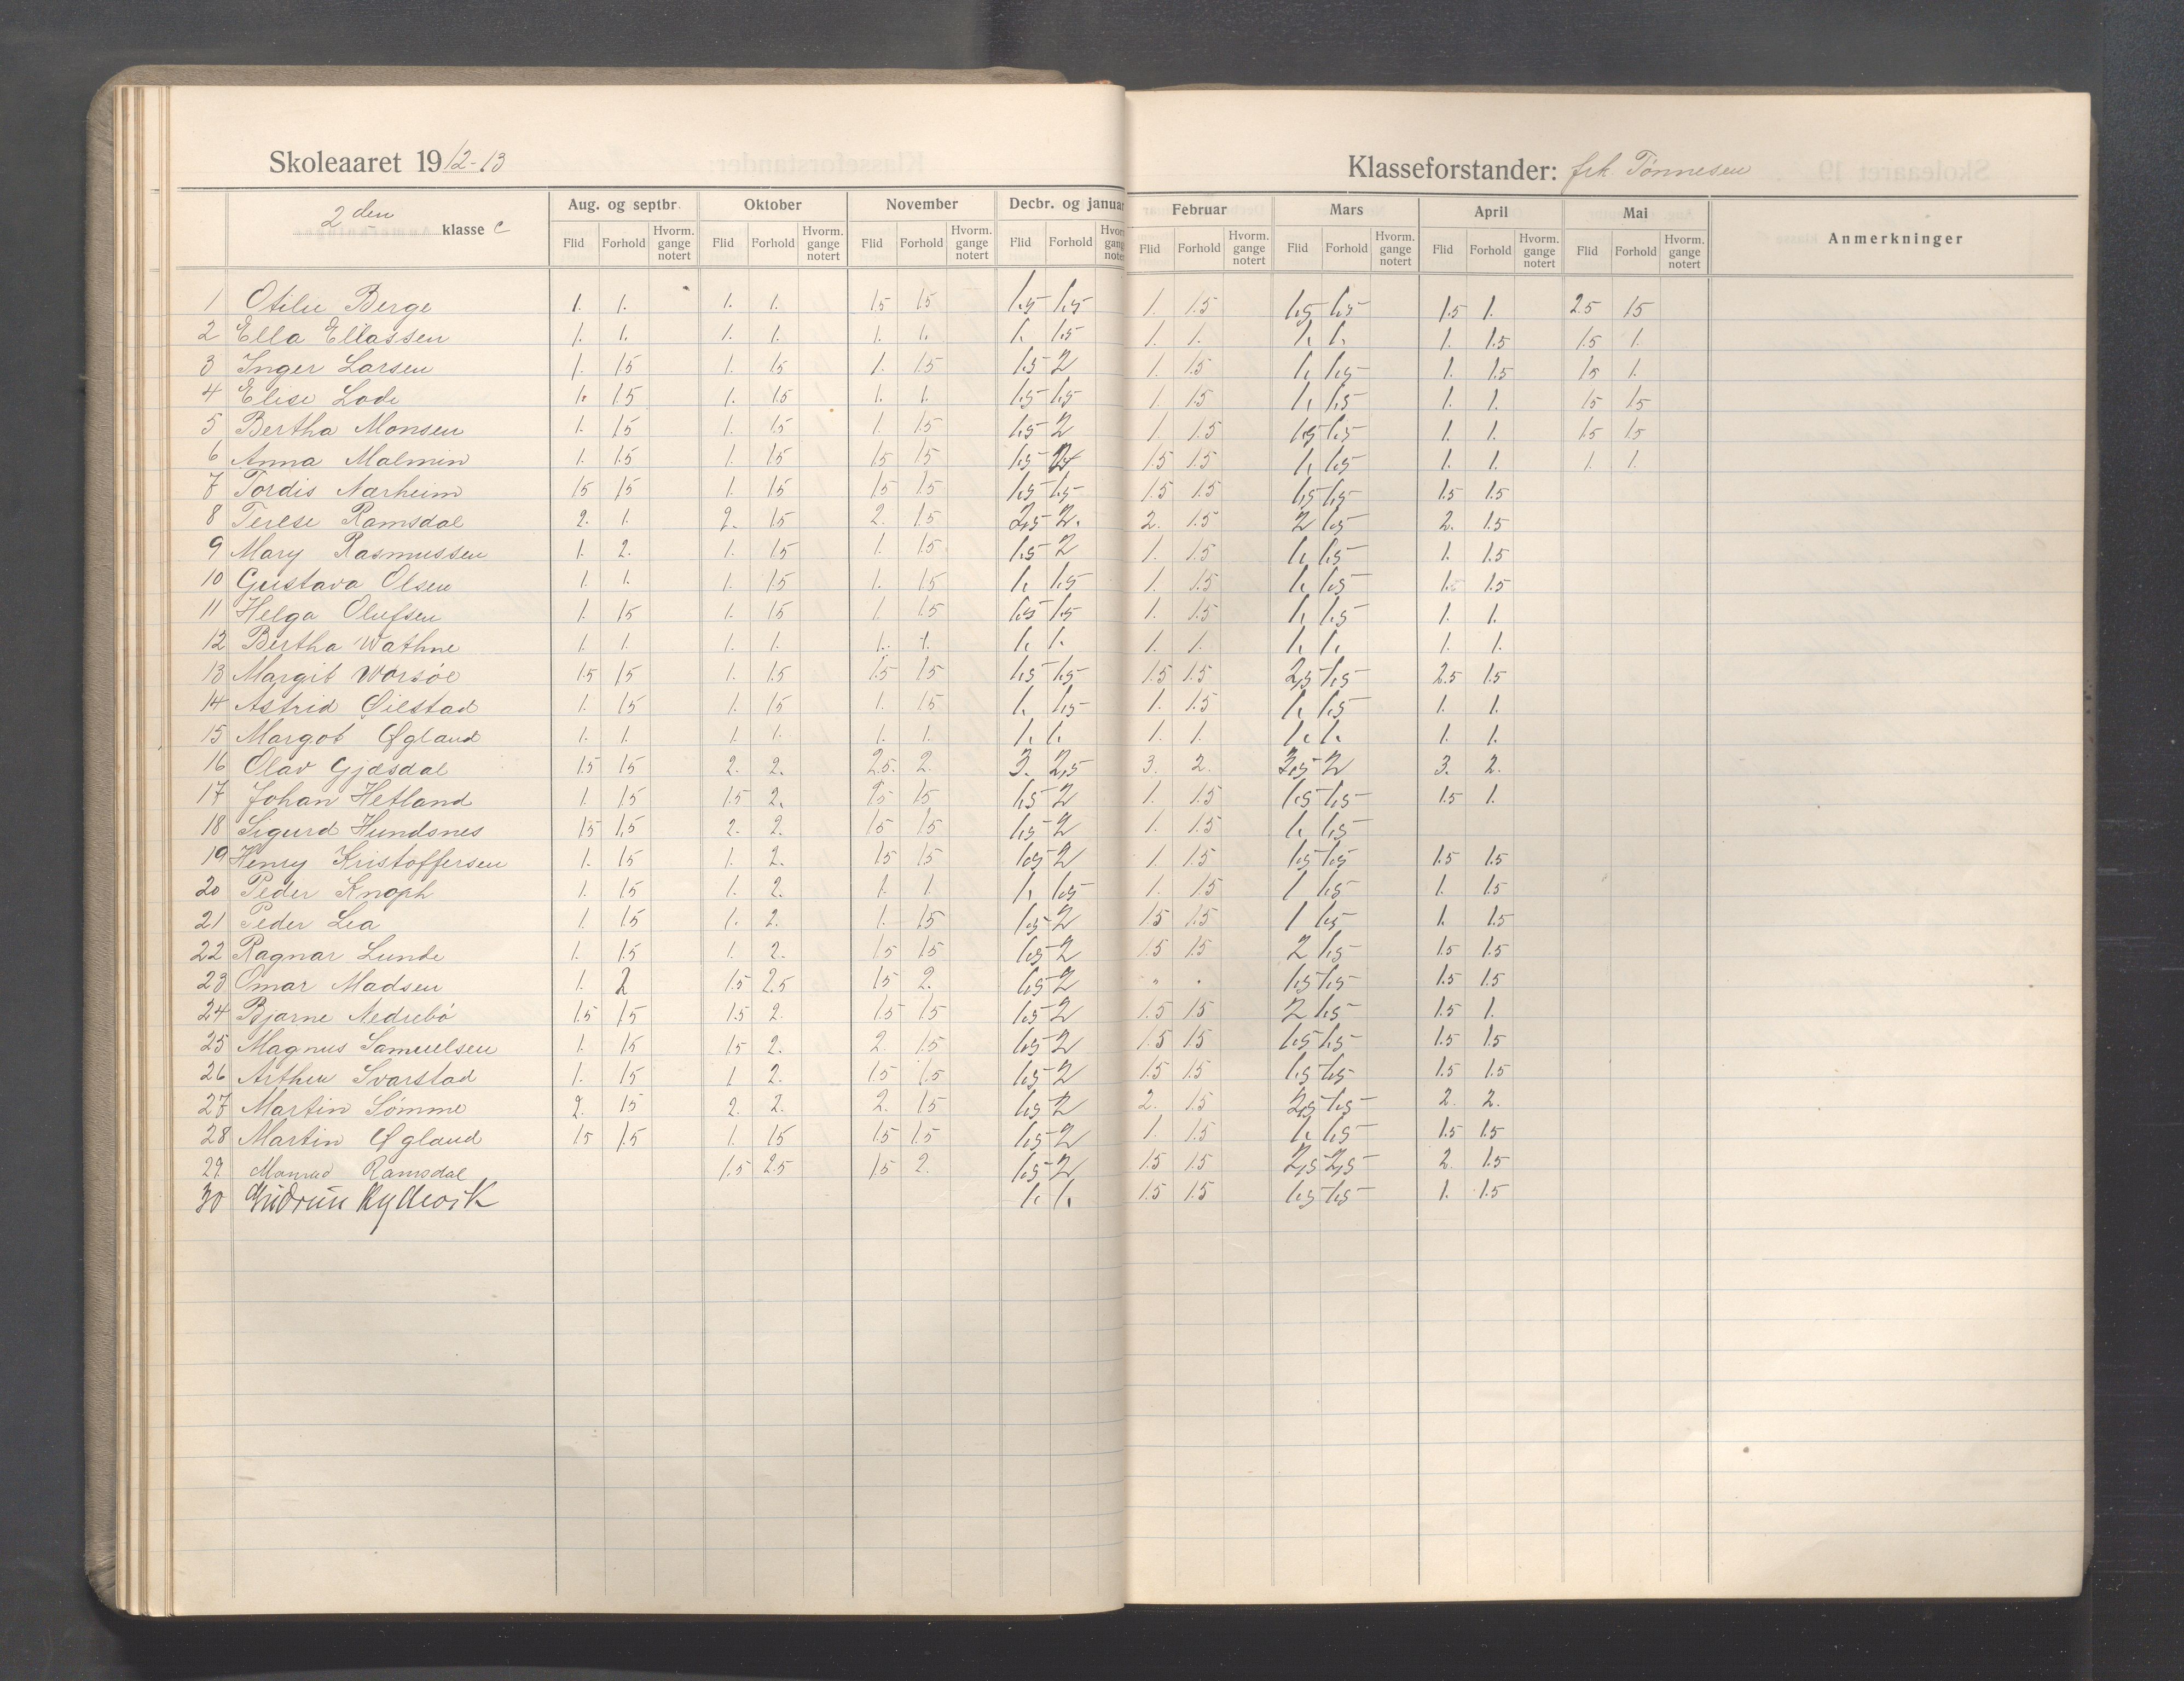 Skoleaaret 1912-13
Klasseforstander: frk. Tønnesen
2den klasse C
Aug. og septbr. Oktober November Decbr. og januar Februar Mars April Mai Anmerkninger
Flid Forhold Hvorm. gange notert Flid Forhold Hvorm. gange notert Flid Forhold Hvorm. gange notert Flid Forhold Flid Forhold Hvorm. gange notert Flid Forhold Hvorm. gange notert Flid Forhold Hvorm. gange notert Flid Forhold Hvorm. gange notert
1 Otilie Berge 1. 1. 1. 1. 15 15 1,5 1,5 1. 1.5 1,5 1,5 1.5 1. 2.5 15
2 Ella Eliassen 1. 1. 1. 1. 1. 1. 1. 1.5 1. 1. 1, 1. 1. 1.5 1.5 1.
3 Inger Larsen 1. 15 1. 15 1. 15 1.5 2 1. 15 1, 1,5 1. 1.5 15 1.
4 Elise Lode 1. 1.5 1. 15 1. 1. 1,5 1,5 1. 15 1, 1,5 1. 1. 15 15
5 Bertha Monsen 1. 15 1. 15 1. 15 1,5 2 1. 1.5 1,5 1,5 1. 1. 1.5 1.5
6 Anna Malmin 1. 1.5 1. 1.5 15 15 1,5 1.5 1.5 1, 1,5 1. 1. 1. 1.
7 Tordis Nærheim 15 15 1. 15 15 1.5 1,5 1,5 1.5 1.5 1,5 1,5 1.5 1.5
8 Terese Ramsdal 2. 1. 2. 15 2. 1.5 2,5 2. 2. 1.5 2 1,5 2. 1.5
9 Mary Rasmussen 1. 2. 1. 15 1. 1.5 1,5 2 1. 1.5 1, 1,5 1. 1.5
10 Gustava Olsen 1. 1. 1. 1.5 1. 15 1, 1,5 1. 1.5 1, 1,5 1. 1.5
11 Helga Olufsen 1. 15 1. 15 1. 1.5 1,5 1,5 1. 1.5 1, 1,5 1. 1.
12 Bertha Wathne 1. 1. 1. 1. 1. 1. 1. 1. 1. 1. 1, 1, 1. 1.
13 Margit Worsöe 1.5 15 1. 1.5 1.5 15 1,5 1,5 1.5 1.5 2,5 1,5 2.5 1.5
14 Astrid Øilstad 1. 15 1. 15 1. 15 1, 1,5 1. 1.5 1, 1,5 1. 1.
15 Margot Øgland 1. 1. 1. 1. 1. 1. 1, 1. 1. 1. 1, 1, 1. 1.
16 Olav Gjæsdal 1.5 15 2. 2. 2.5. 2. 3. 2,5 3. 2. 3,5 2 3. 2.
17 Johan Hetland 1. 1.5 1.5 2. 15 15 1,5 2 1. 1.5 1,5 1,5 1.5 1.
18 Sigurd Hundsnes 15 1.5 2. 2. 15 15 1,5 2 1. 1.5 1, 1,5
19 Henry Kristoffersen 1. 15 1. 2. 15 15 1,5 2 1. 1.5 1,5 1,5 1.5 1.5
20 Peder Knoph 1. 15 1. 2. 1. 1. 1, 1,5 1. 1.5 1 1,5 1. 1.5
21 Peder Lea 1. 15 1. 2. 1. 15 1,5 2 15 1.5 1 1,5 1. 1.5
22 Ragnar Lunde 1. 1.5 1. 2. 15 15 1,5 2 1.5 15 2 1,5 1.5 1.5
23 Omar Madsen 1. 2 1.5 2.5 15 2. 1,5 2 " . 1,5 1,5 1.5 1.5
24 Bjarne Nedrebö 1.5 15 1.5 2. 1.5 15 1,5 2 1.5 15 2 1,5 1.5 1.
25 Magnus Samuelsen 1. 15 15 2. 2. 1.5 1,5 2 1.5 15 1,5 1,5 1.5 1.5
26 Arthur Svarstad 1. 15 1 2. 1.5 1.5 1,5 2 1.5 15 1,5 1,5 1.5 1.5
27 Martin Sömme 2. 15 2. 2. 2. 15 1,5 2 2. 1.5 2,5 1,5 2. 2.
28 Martin Øgland 15 1.5 1. 15 1.5 1.5 1,5 2 1. 1.5 1, 1,5 1.5 1.5
29 Monrad Ramsdal 1.5 2.5 15 2. 1,5 2 1.5 1.5 2,5 2,5 2. 1.5
30 Gudrun 1. 1. 1.5 1.5 1,5 1,5 1. 1.5